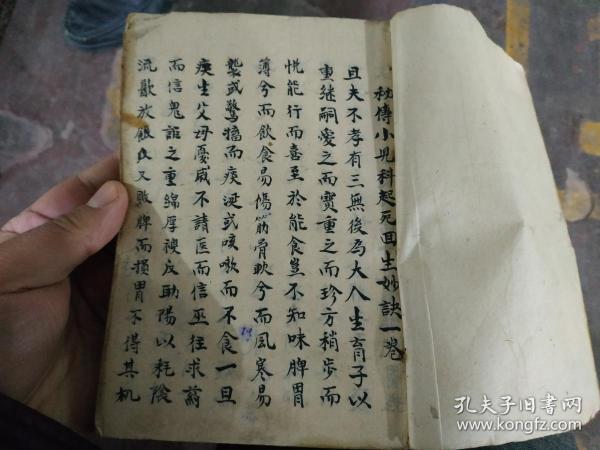 秘傳小児科起死回生妙訣一卷
且夫不孝有三無後為大人生育子以
重继嗣愛之而寳重之而珍方稍步而
悦能行而喜至於能食豈不知味脾胃
薄兮而飲食易傷筋骨軟兮而風寒易
襲或驚搐而痰涎或咳嗽而不食一旦
疾生父母憂戚不請醫而信巫往求籤
而信鬼 之重綿厚襖反助陽以耗陰
流歠放 氏又敗脾而損胃不得其机
孔夫子旧書网
www.kongfz.com